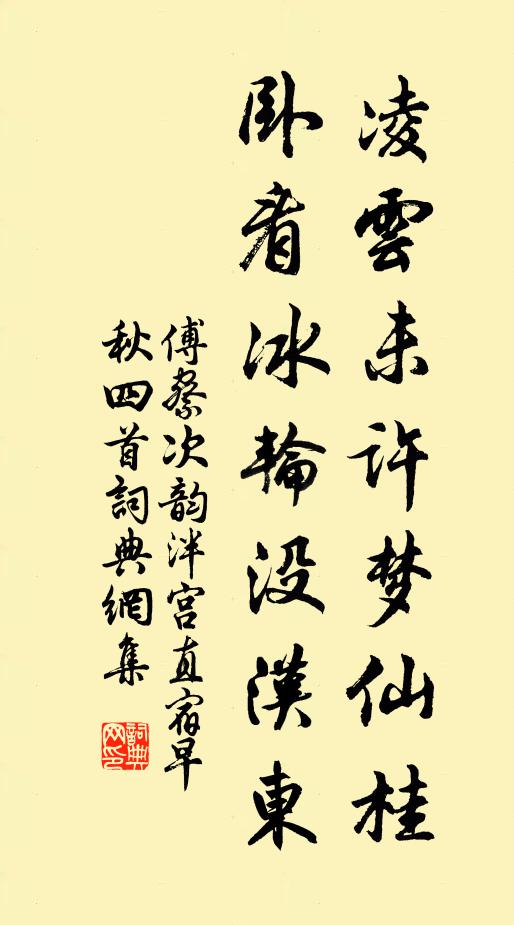 凌雲未许梦仙桂
卧看冰輪没漢東
傅察次韵泮宫直宿早
秋四首詞典網集
詞典網印